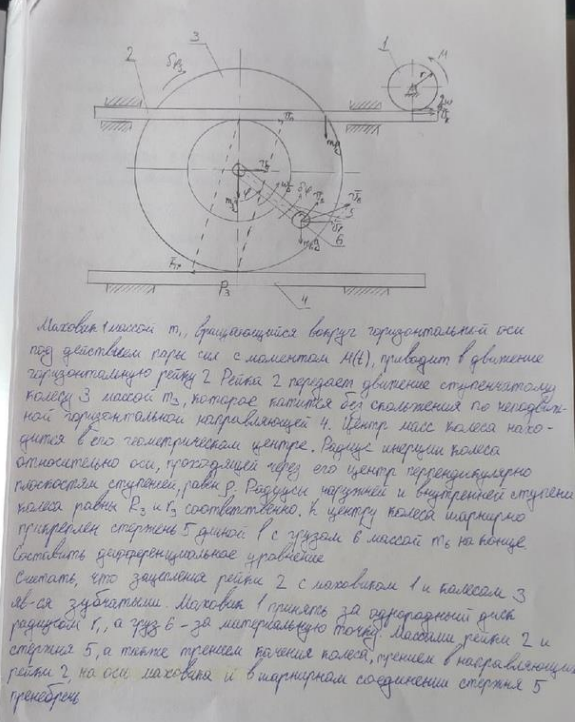 3
1
2
δφ₃
M
r₁
m₃g
φ
δφ
5
6
m₆g
P₃
4
Маховик 1 массой m₁, вращающийся вокруг горизонтальной оси
под действием пары сил с моментом M(t), приводит в движение
горизонтальную рейку 2 Рейка 2 передает движение ступенчатому
колесу 3 массой m₃, которое катится без скольжения по неподвиж-
ной горизонтальной направляющей 4. Центр масс колеса нахо-
дится в его геометрическом центре. Радиус инерции колеса
относительно оси, проходящей через его центр перпендикулярно
плоскостям ступеней, равен ρ. Радиусы наружней и внутренней ступени
колеса равны R₃ и r₃ соответственно. К центру колеса шарнирно
прикреплен стержень 5 длиной l с грузом 6 массой m₆ на конце
Составить дифференциальное уравнение
Считать, что зацепления рейки 2 с маховиком 1 и колесом 3
яв-ся зубчатыми. Маховик 1 принять за однородный диск
радиусом r₁, а груз 6 - за материальную точку. Массами рейки 2 и
стержня 5, а также трением качения колеса, трением в направляющих
рейки 2, на оси маховика и в шарнирном соединении стержня 5
пренебречь